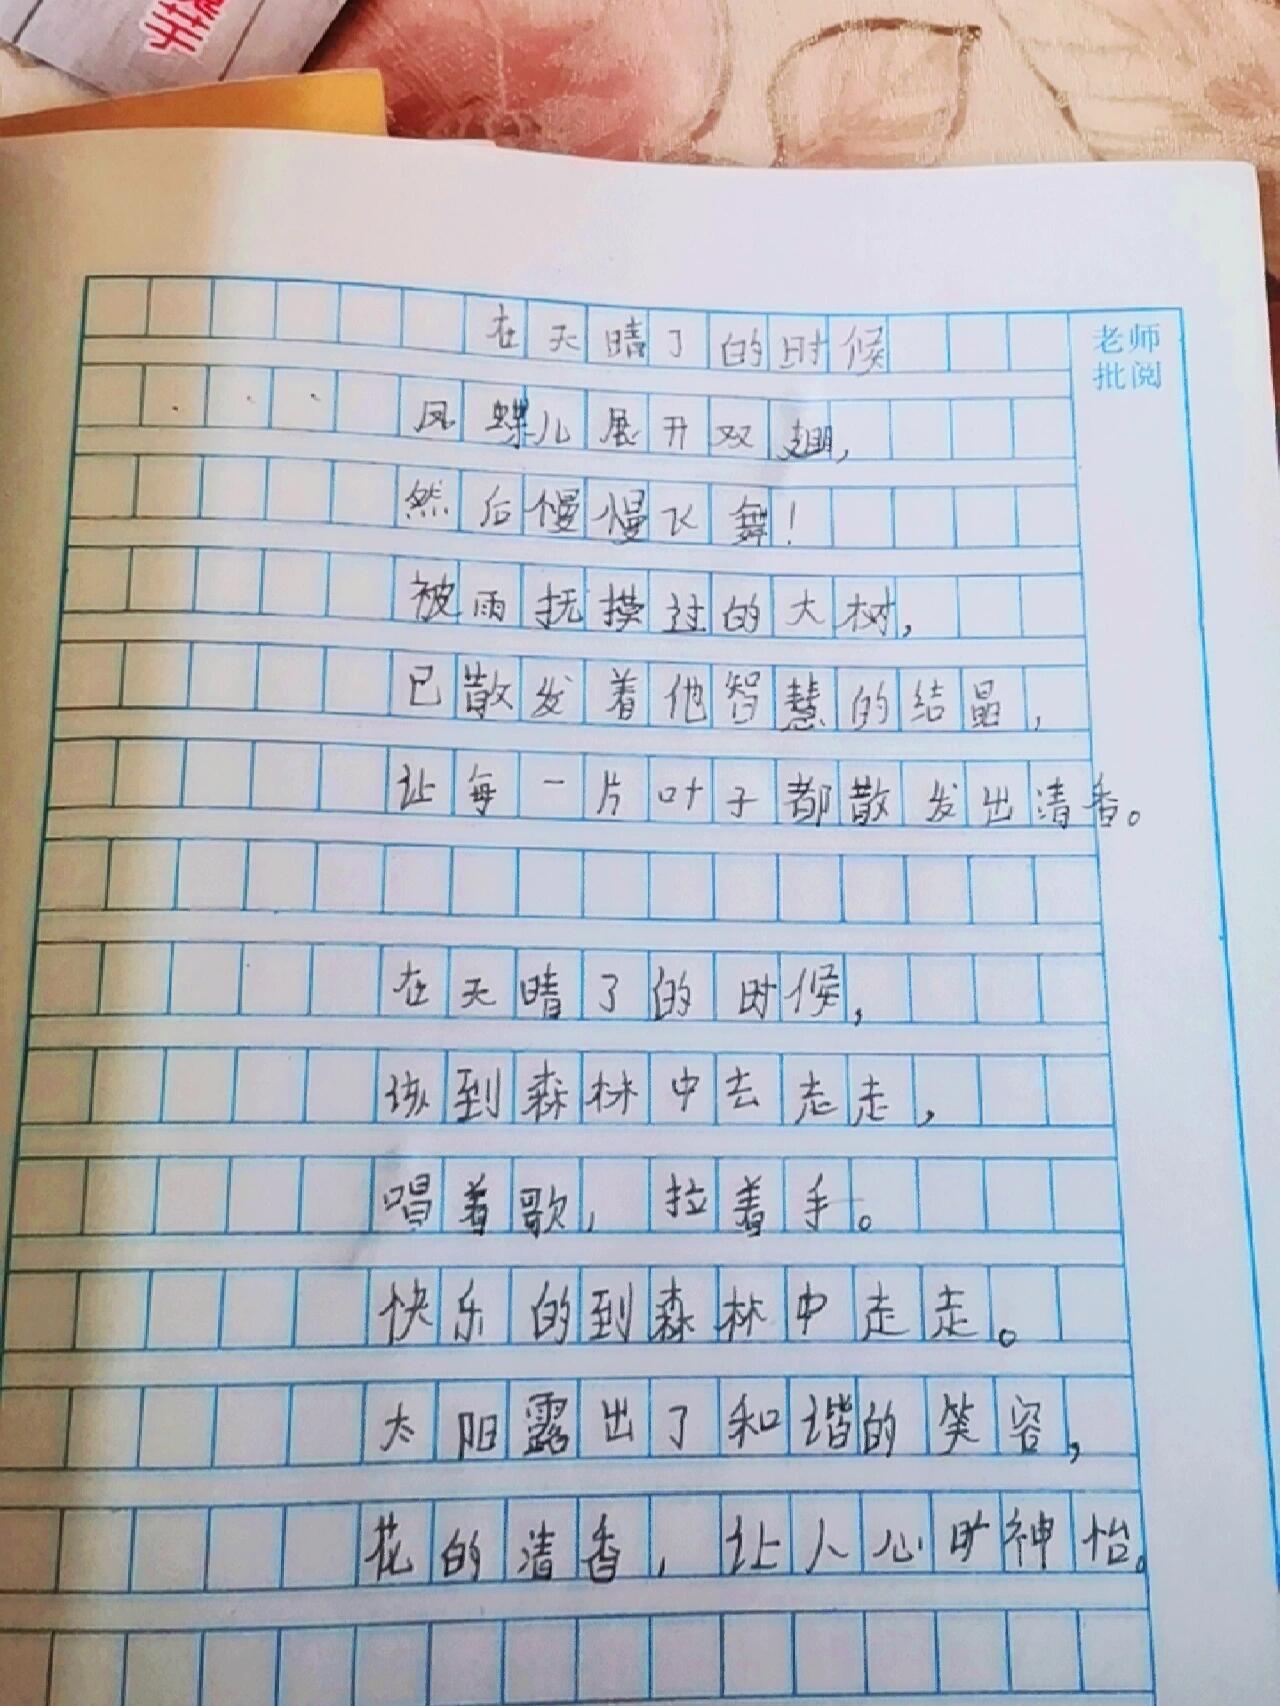 在天晴了的时候
老师
批阅
凤蝶儿展开双翅,
然后慢慢飞舞!
被雨抚摸过的大树,
已散发着他智慧的结晶,
让每一片叶子都散发出清香。
在天晴了的时候,
该到森林中去走走,
唱着歌,拉着手。
快乐的到森林中走走。
太阳露出了和谐的笑容,
花的清香,让人心旷神怡。